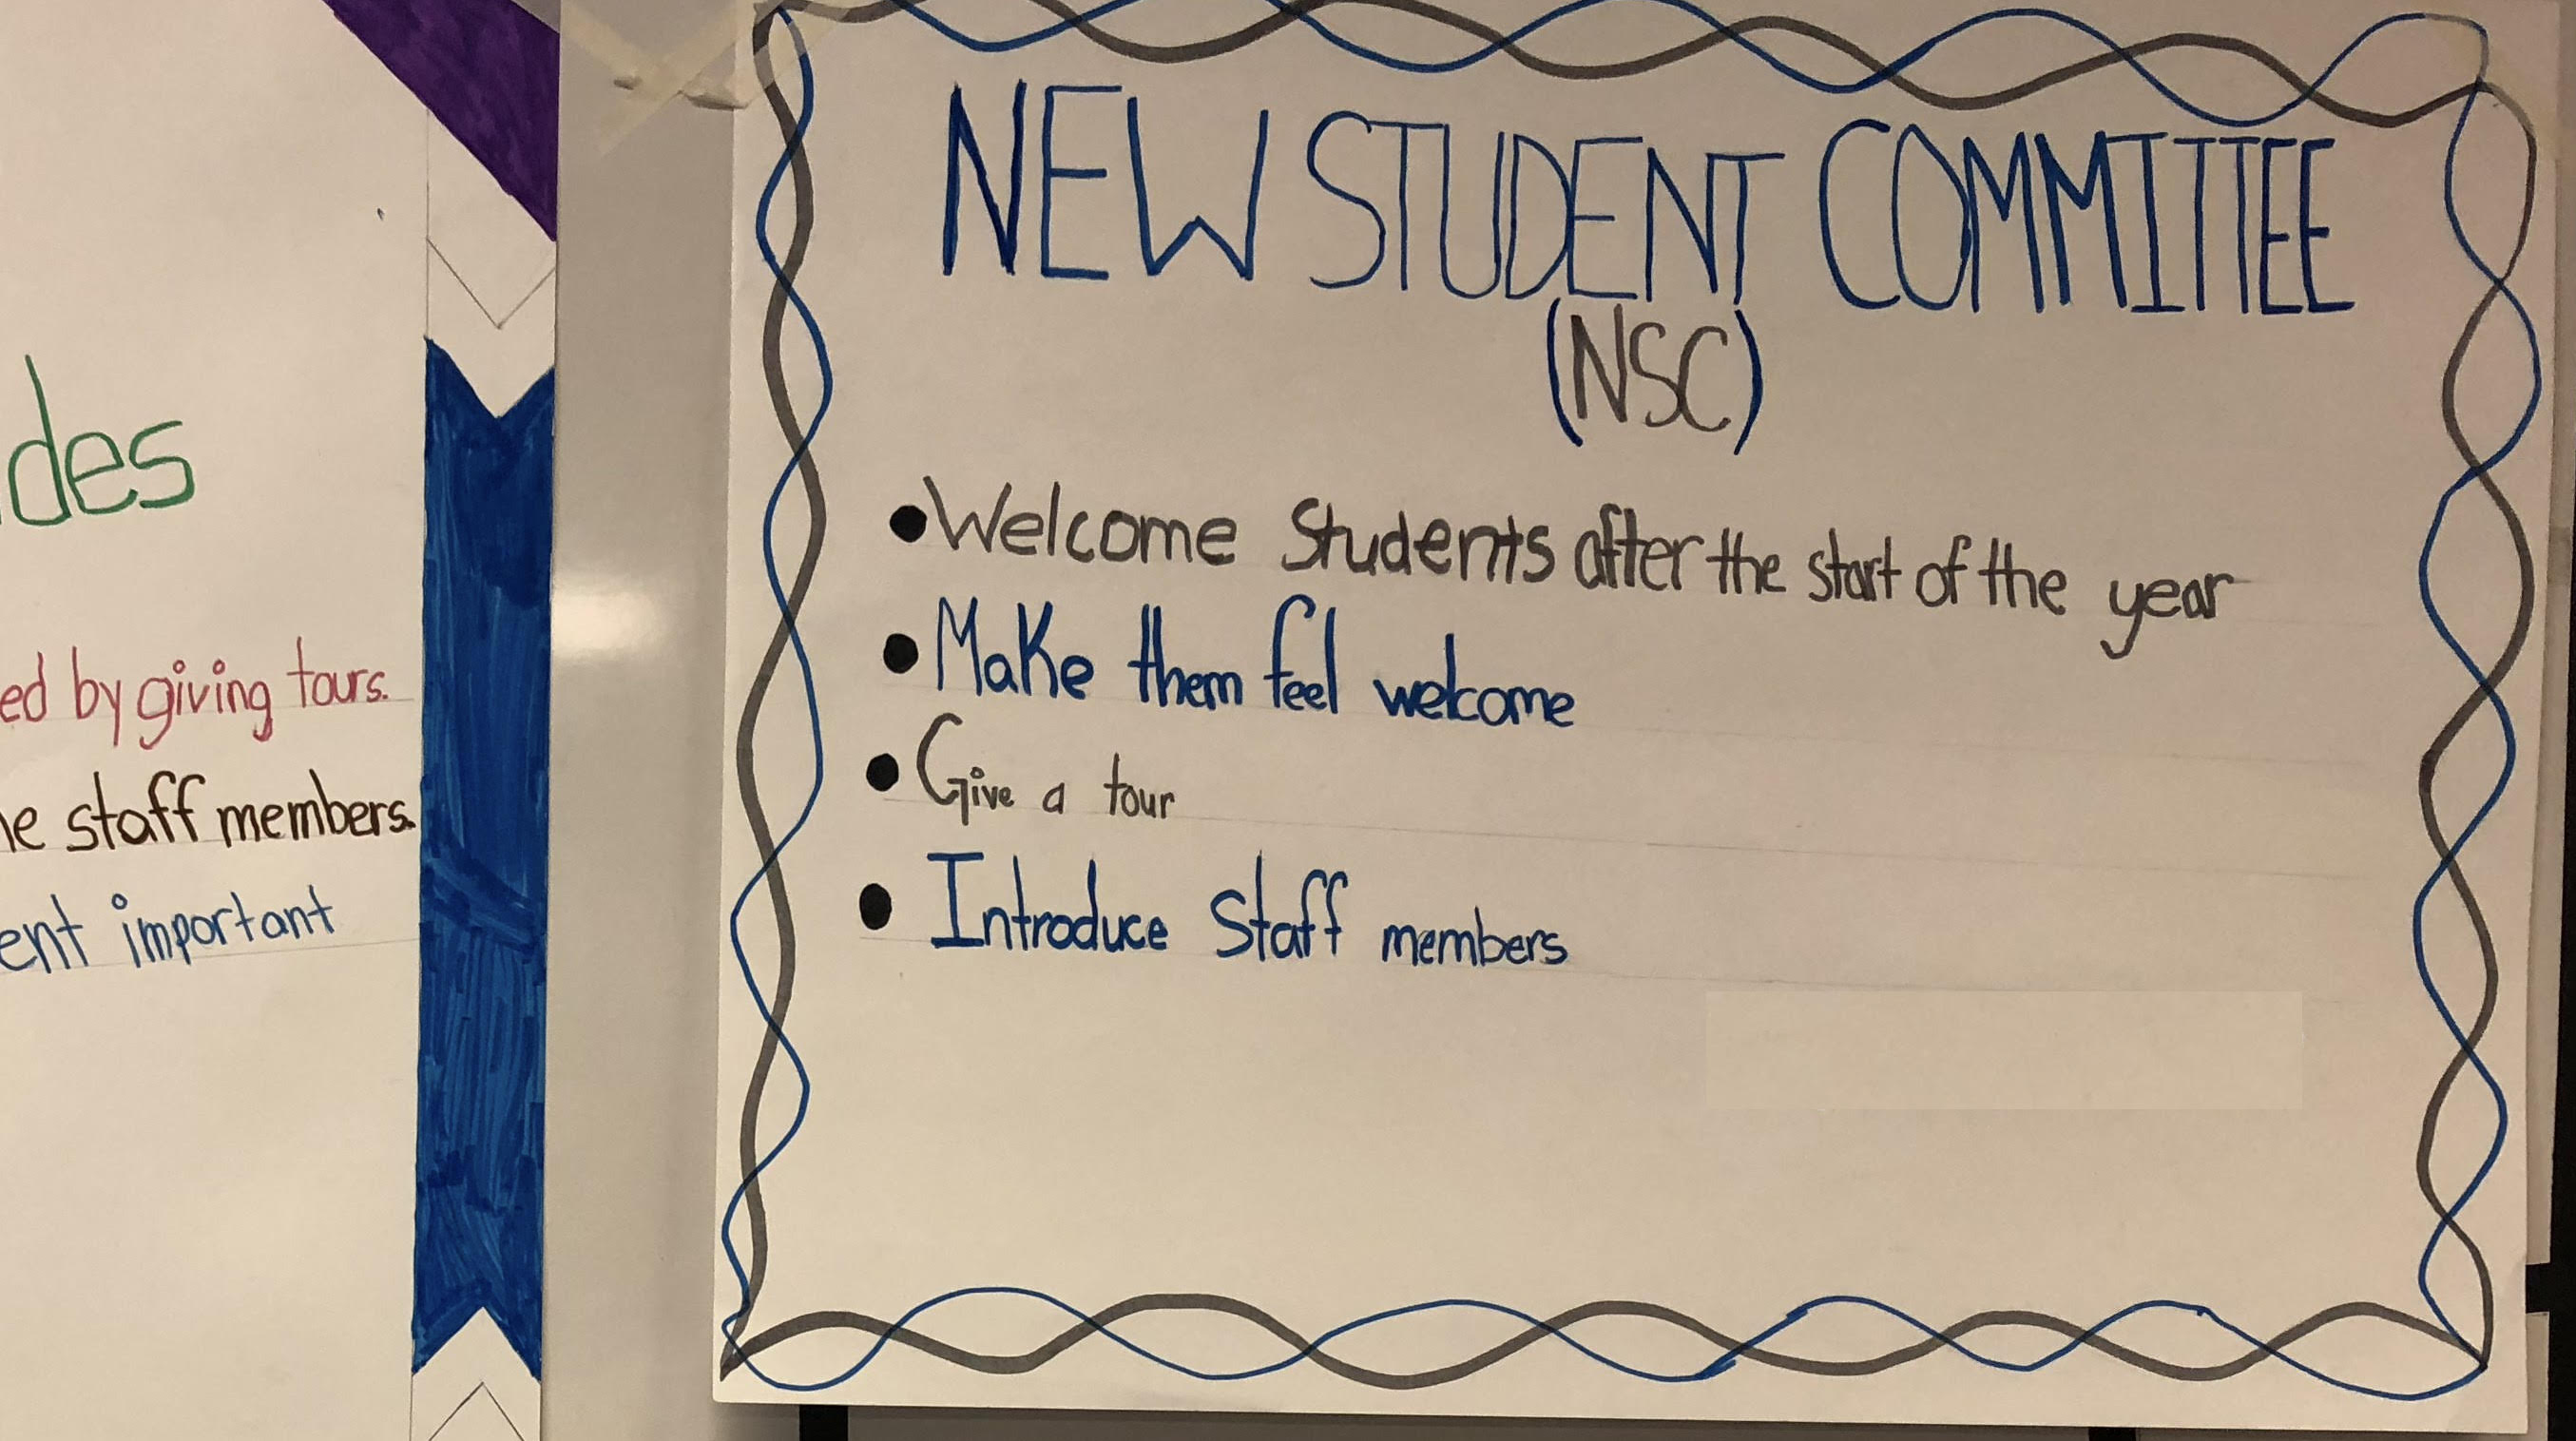 des
ed by giving tours.
he staff members.
ent important
NEW STUDENT COMMITTEE
(NSC)
• Welcome Students after the start of the year
• Make them feel welcome
• Give a tour
• Introduce Staff members